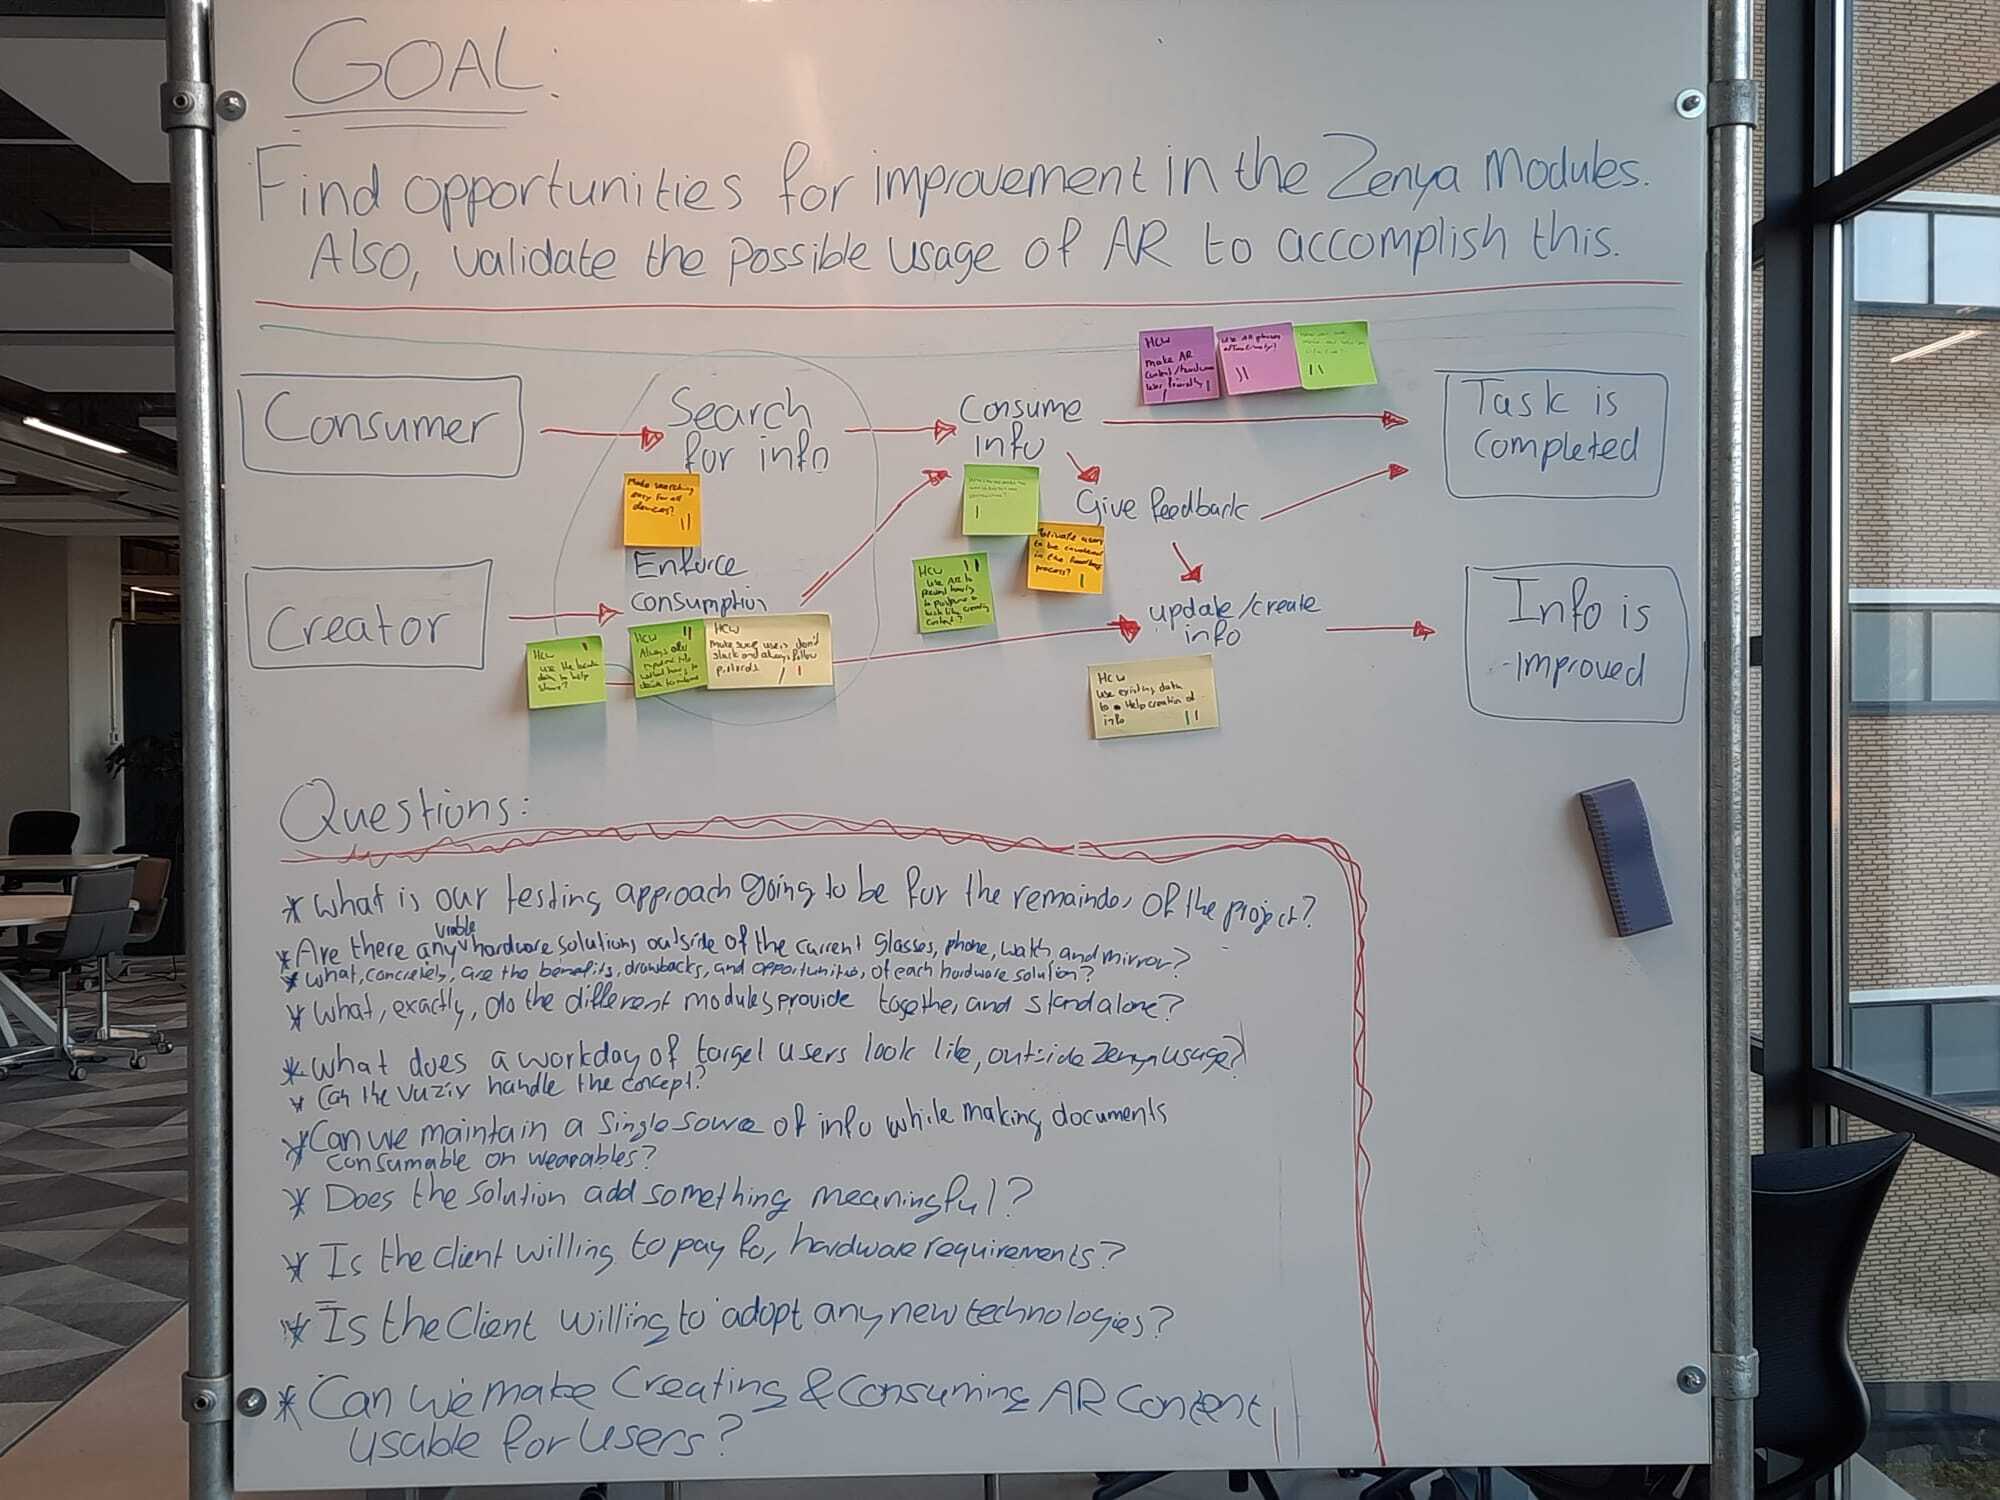 GOAL:
Find opportunities for improvement in the Zenya Modules.
Also, validate the possible usage of AR to accomplish this.
HCW
make AR
content/hardware
user friendly
use AR
Consumer
Search
for info
Consume
info
Task is
completed
Make searching
easy for all
devices?
Give feedback
users
to be
in the feedback
process?
Enforce
consumption
Creator
HCW
use AR to
to
content?
update/create
info
Info is
improved
HCW
use the
data to help
HCW
Always
HCW
make sure users don't
slack and always follow
HCW
use existing data
to Help creation of
info
Questions:
* What is our testing approach going to be for the remainder of the project?
* Are there any viable hardware solutions outside of the current glasses, phone, watch and mirror?
* What, concretely, are the benefits, drawbacks, and opportunities, of each hardware solution?
* What, exactly, do the different modules provide together, and standalone?
* What does a workday of target users look like, outside Zenya usage?
* Can the Vuzix handle the concept?
* Can we maintain a single source of info while making documents
consumable on wearables?
* Does the solution add something meaningful?
* Is the client willing to pay for hardware requirements?
* Is the Client willing to adopt any new technologies?
* Can we make Creating & Consuming AR Content
usable for users?